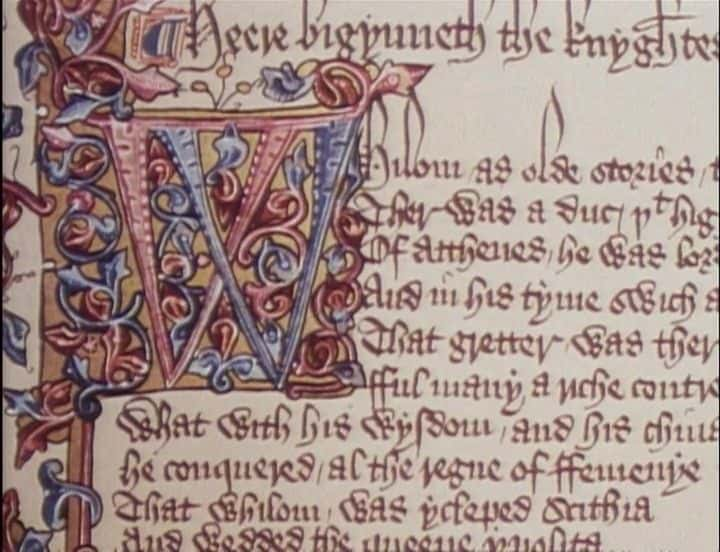 Heere bigynneth the knyghtes
Whilom as olde stories t
Ther was a duc / yt hig
Of Atthenes / he was lor
And in his tyme swich a
That gretter was ther
fful many a riche contr
What with his wysdom / and his chiua
he conquered / al the regne of ffemenye
That whilom / was ycleped Scithia
And wedded the queene ypolita